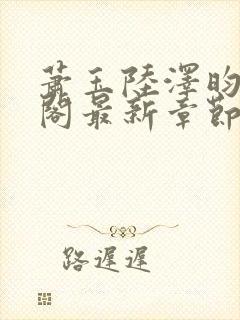 蕭玉陸澤昀
閣最新章節
路遲遲